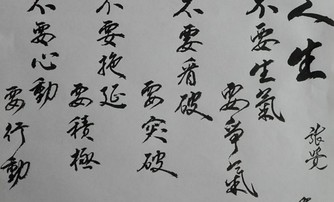 人生
不要生氣
要爭氣
不要看破
要突破
不要拖延
要積極
不要心動
要行動